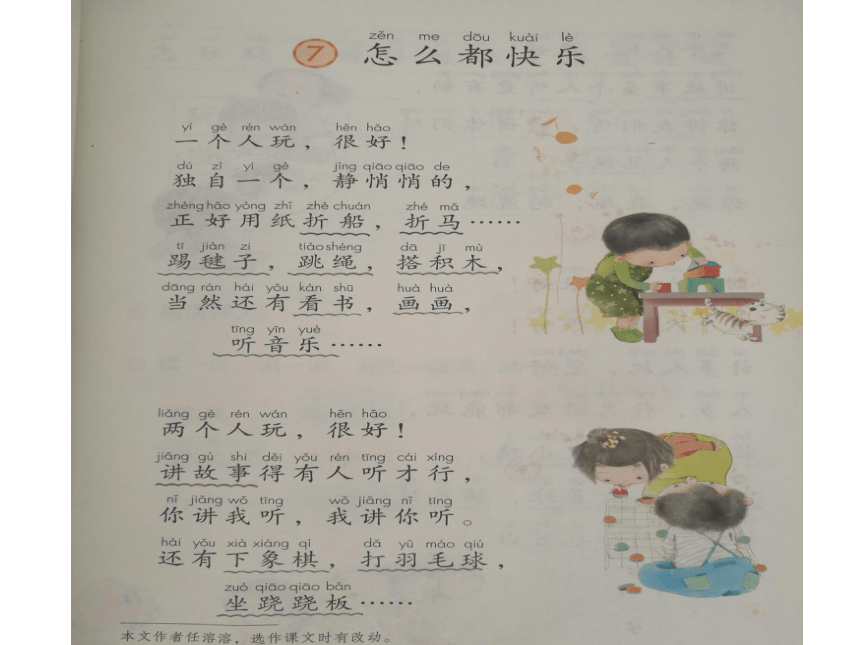 zěn me dōu kuài lè
7 怎么都快乐
yí gè rén wán hěn hǎo
一个人玩，很好！
dú zì yí gè jìng qiāo qiāo de
独自一个，静悄悄的，
zhèng hǎo yòng zhǐ zhé chuán zhé mǎ
正好用纸折船，折马……
tī jiàn zi tiào shéng dā jī mù
踢毽子，跳绳，搭积木，
dāng rán hái yǒu kàn shū huà huà
当然还有看书，画画，
tīng yīn yuè
听音乐……
liǎng gè rén wán hěn hǎo
两个人玩，很好！
jiǎng gù shi děi yǒu rén tīng cái xíng
讲故事得有人听才行，
nǐ jiǎng wǒ tīng wǒ jiǎng nǐ tīng
你讲我听，我讲你听。
hái yǒu xià xiàng qí dǎ yǔ máo qiú
还有下象棋，打羽毛球，
zuò qiāo qiāo bǎn
坐跷跷板……
本文作者任溶溶，选作课文时有改动。